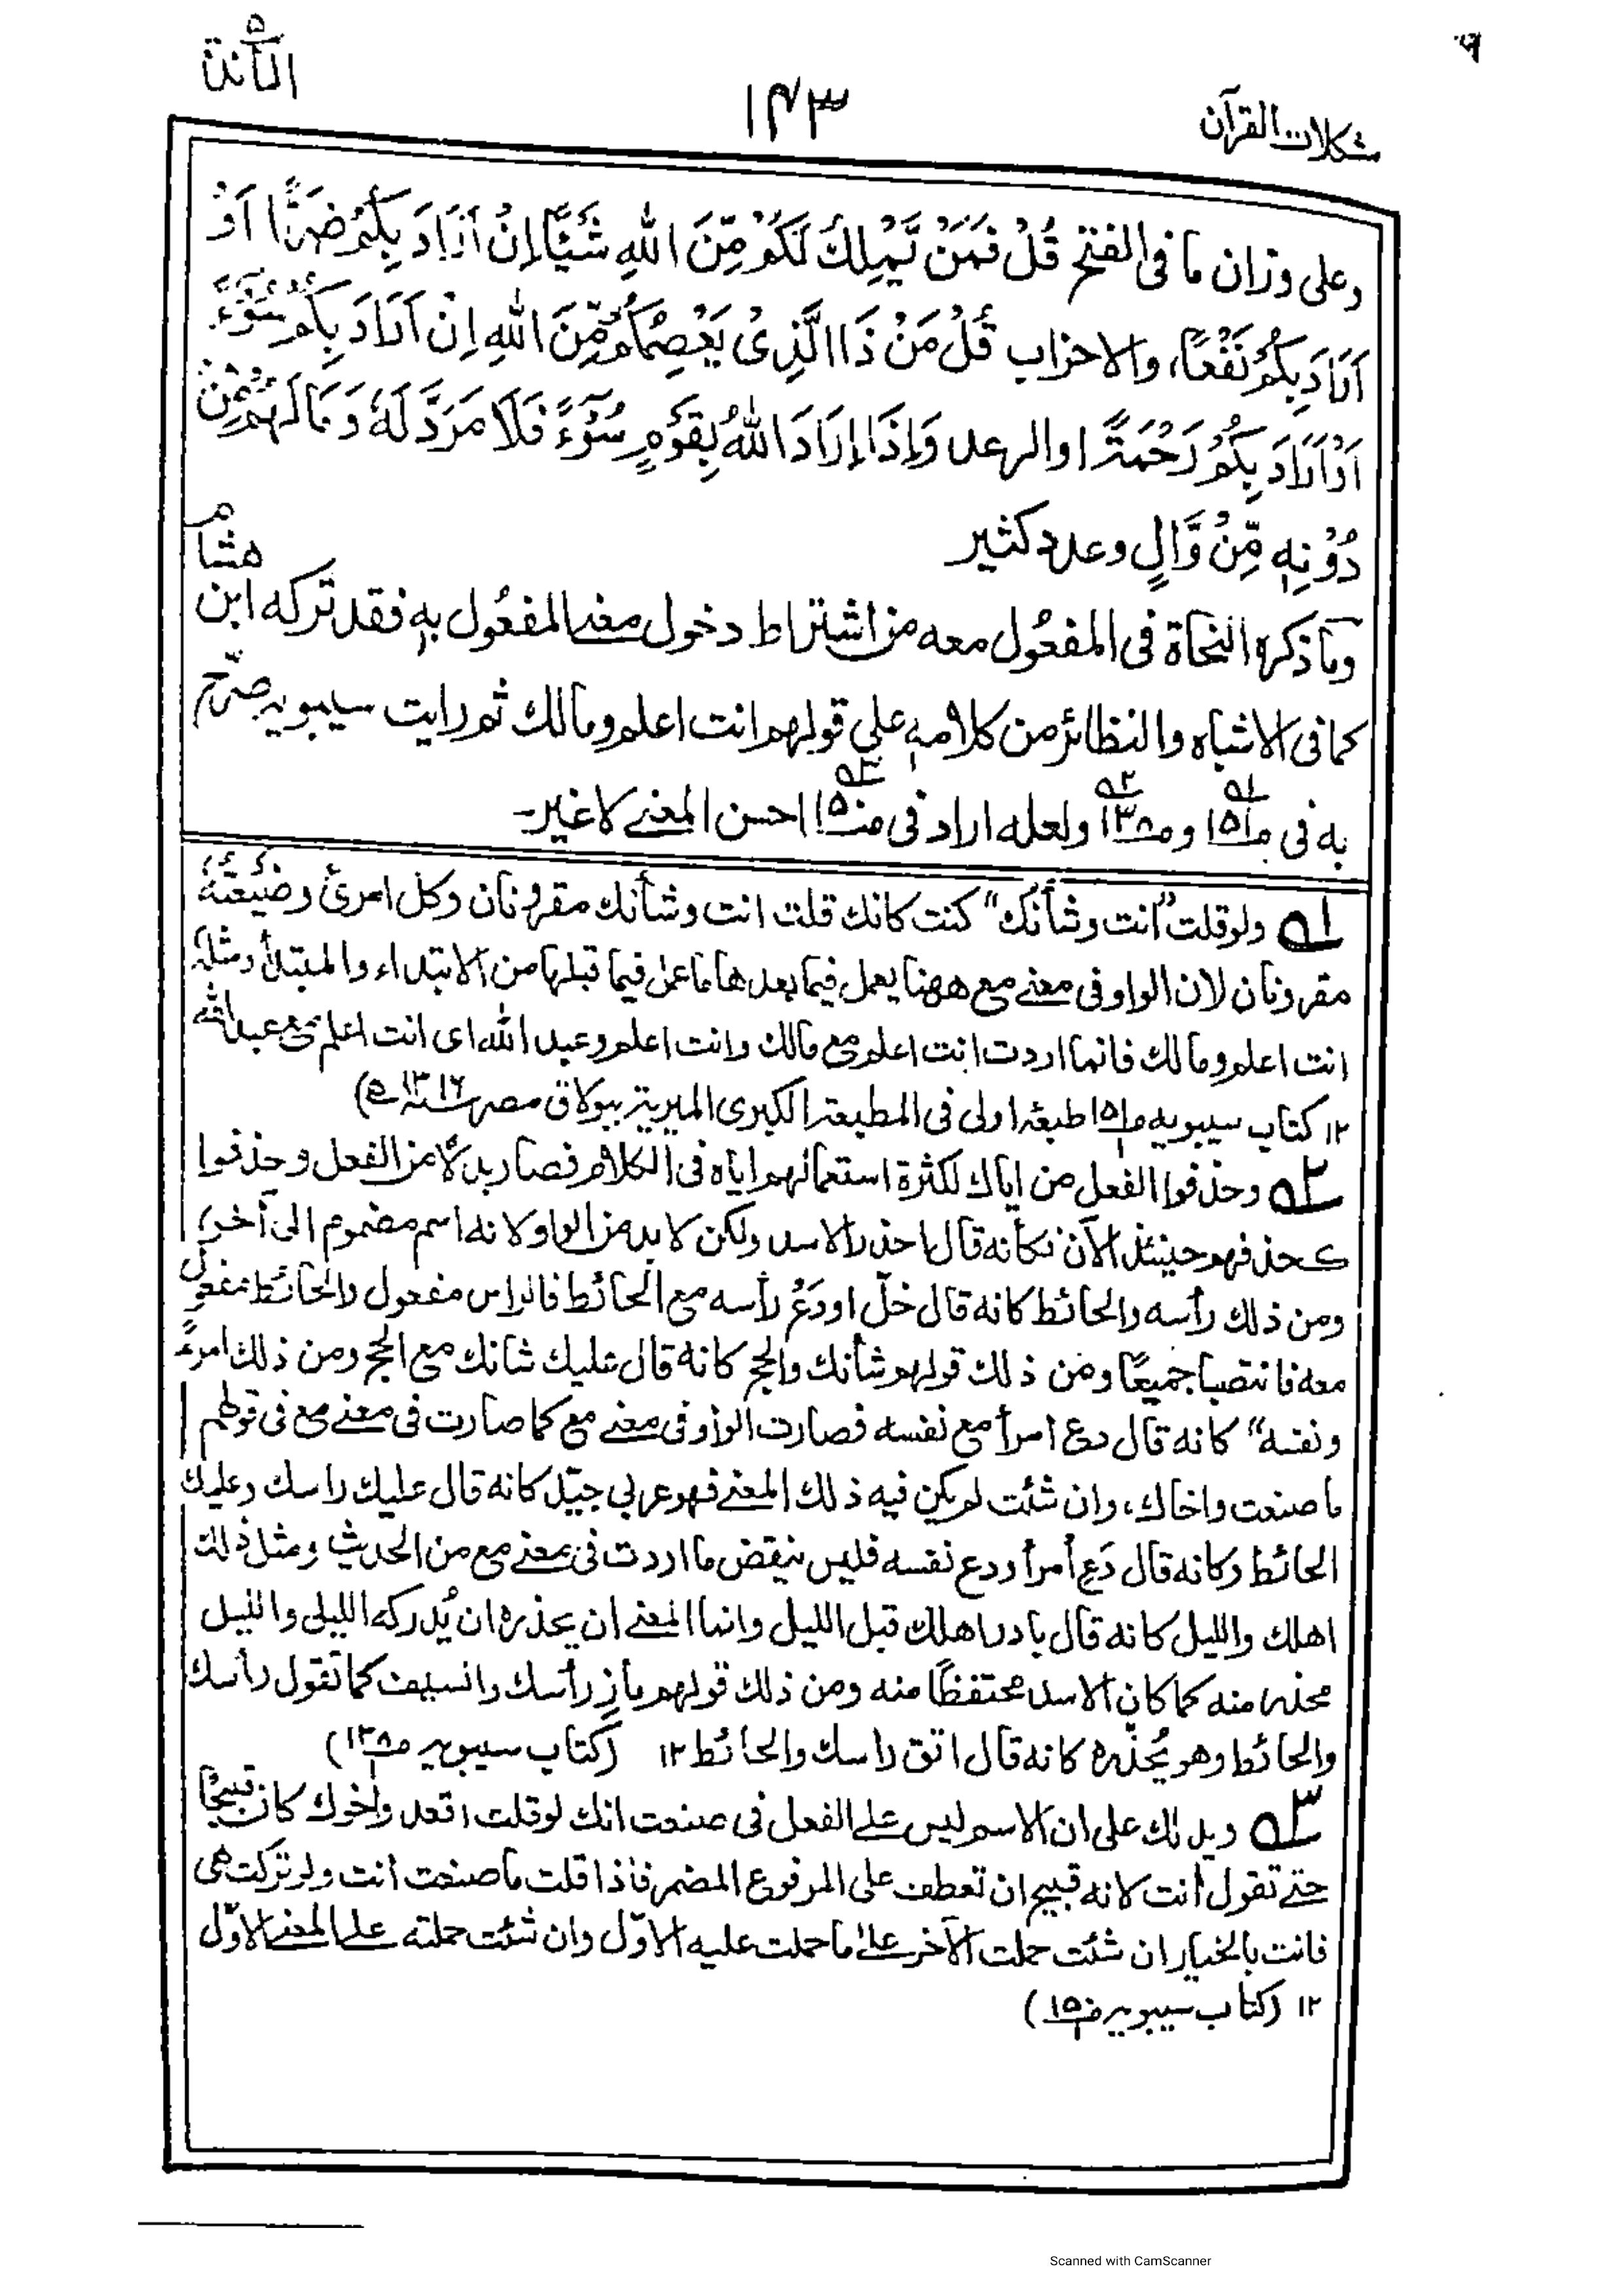 المائدة ٥
١٤٣
مشكلات القرآن
وعلى وزان ما فى الفتح قُلْ فَمَنْ يَّمْلِكُ لَكُمْ مِّنَ اللهِ شَيْئًا اِنْ اَرَادَ بِكُمْ ضَرًّا اَوْ
اَرَادَ بِكُمْ نَفْعًا، والاحزاب قُلْ مَنْ ذَا الَّذِىْ يَعْصِمُكُمْ مِّنَ اللهِ اِنْ اَرَادَ بِكُمْ سُوْٓءً
اَوْ اَرَادَ بِكُمْ رَحْمَةً او الرعد وَاِذَا اَرَادَ اللهُ بِقَوْمٍ سُوْٓءً فَلَا مَرَدَّ لَهٗ وَمَا لَهُمْ مِّنْ
دُوْنِهٖ مِنْ وَّالٍ وعدد كثير
وما ذكره النحاة فى المفعُول معه من اشتراط دخول معنى المفعُول بهٖ فقد تركه ابن هشام
كما فى الاشباه والنظائر من كلامهٖ على قولهم انت اعلم ومالك ثم رايت سيبويه صرّح
به فى ص١٥١ وص١٣٨ ولعله اراد فى ص١٥٠ احسن المعنى لا غير۔
١ه ولو قلت "انت وشأنك" كنت كانك قلت انت وشأنك مقرونان وكل امرئ وضيعتهٗ
مقرونان لان الواو فى معنى مع ههنا يعمل فيما بعدها ما عمل فيما قبلها من الابتداء والمبتدأ ومثله
انت اعلم ومالك فانما اردت انت اعلم مع مالك وانت اعلم وعبد الله اى انت اعلم مع عبد الله
١٢ كتاب سيبويه ص١٥١ طبعۂ اولى فى المطبعة الكبرى الميرية ببولاق مصر سنة ١٣١٦ه)
٢ه وحذفوا الفعل من اياك لكثرة استعمالهم اياه فى الكلام فصار بدلًا من الفعل وحذفوا
كحذفهم حينئذ الآن فكأنه قال احذر الاسد ولكن لا بد من الواو لانه اسم مضموم الى آخر،
ومن ذلك رأسه والحائط كانه قال خلّ او دَعْ رأسه مع الحائط فالراس مفعول والحائط مفعول
معه فانتصبا جميعًا ومن ذلك قولهم شأنك والحج كانه قال عليك شانك مع الحج ومن ذلك امرءً
ونفسه" كانه قال دع امرأ مع نفسه فصارت الواو فى معنى مع كما صارت فى معنى مع فى قولهم
ما صنعت واخاك، وان شئت لم يكن فيه ذلك المعنى فهو عربى جيّد كانه قال عليك راسك وعليك
الحائط وكانه قال دَعِ أمرأ ودع نفسه فليس ينقض ما اردت فى معنى مع من الحديث ومثل ذلك
اهلك والليل كانه قال بادر اهلك قبل الليل وانما المعنى ان يحذره ان يُدركه الليل والليل
محذر منه كما كان الاسد محتفظًا منه ومن ذلك قولهم مازِ رأسك والسيف كما تقول رأسك
والحائط وهو يُحذّره كانه قال اتق راسك والحائط ١٢ (كتاب سيبويه ص١٣٨)
٣ه ويدلك على ان الاسم ليس على الفعل فى صنعت انك لو قلت اقعد واخوك كان قبيحًا
حتى تقول أنت لانه قبيح ان تعطف على المرفوع المضمر فاذا قلت ما صنعت أنت ولو تركت هى
فانت بالخيار ان شئت حملت الآخر على ما حملت عليه الاوّل وان شئت حملته على المعنى الاوّل
١٢ (كتاب سيبويه ص١٥٠)
Scanned with CamScanner